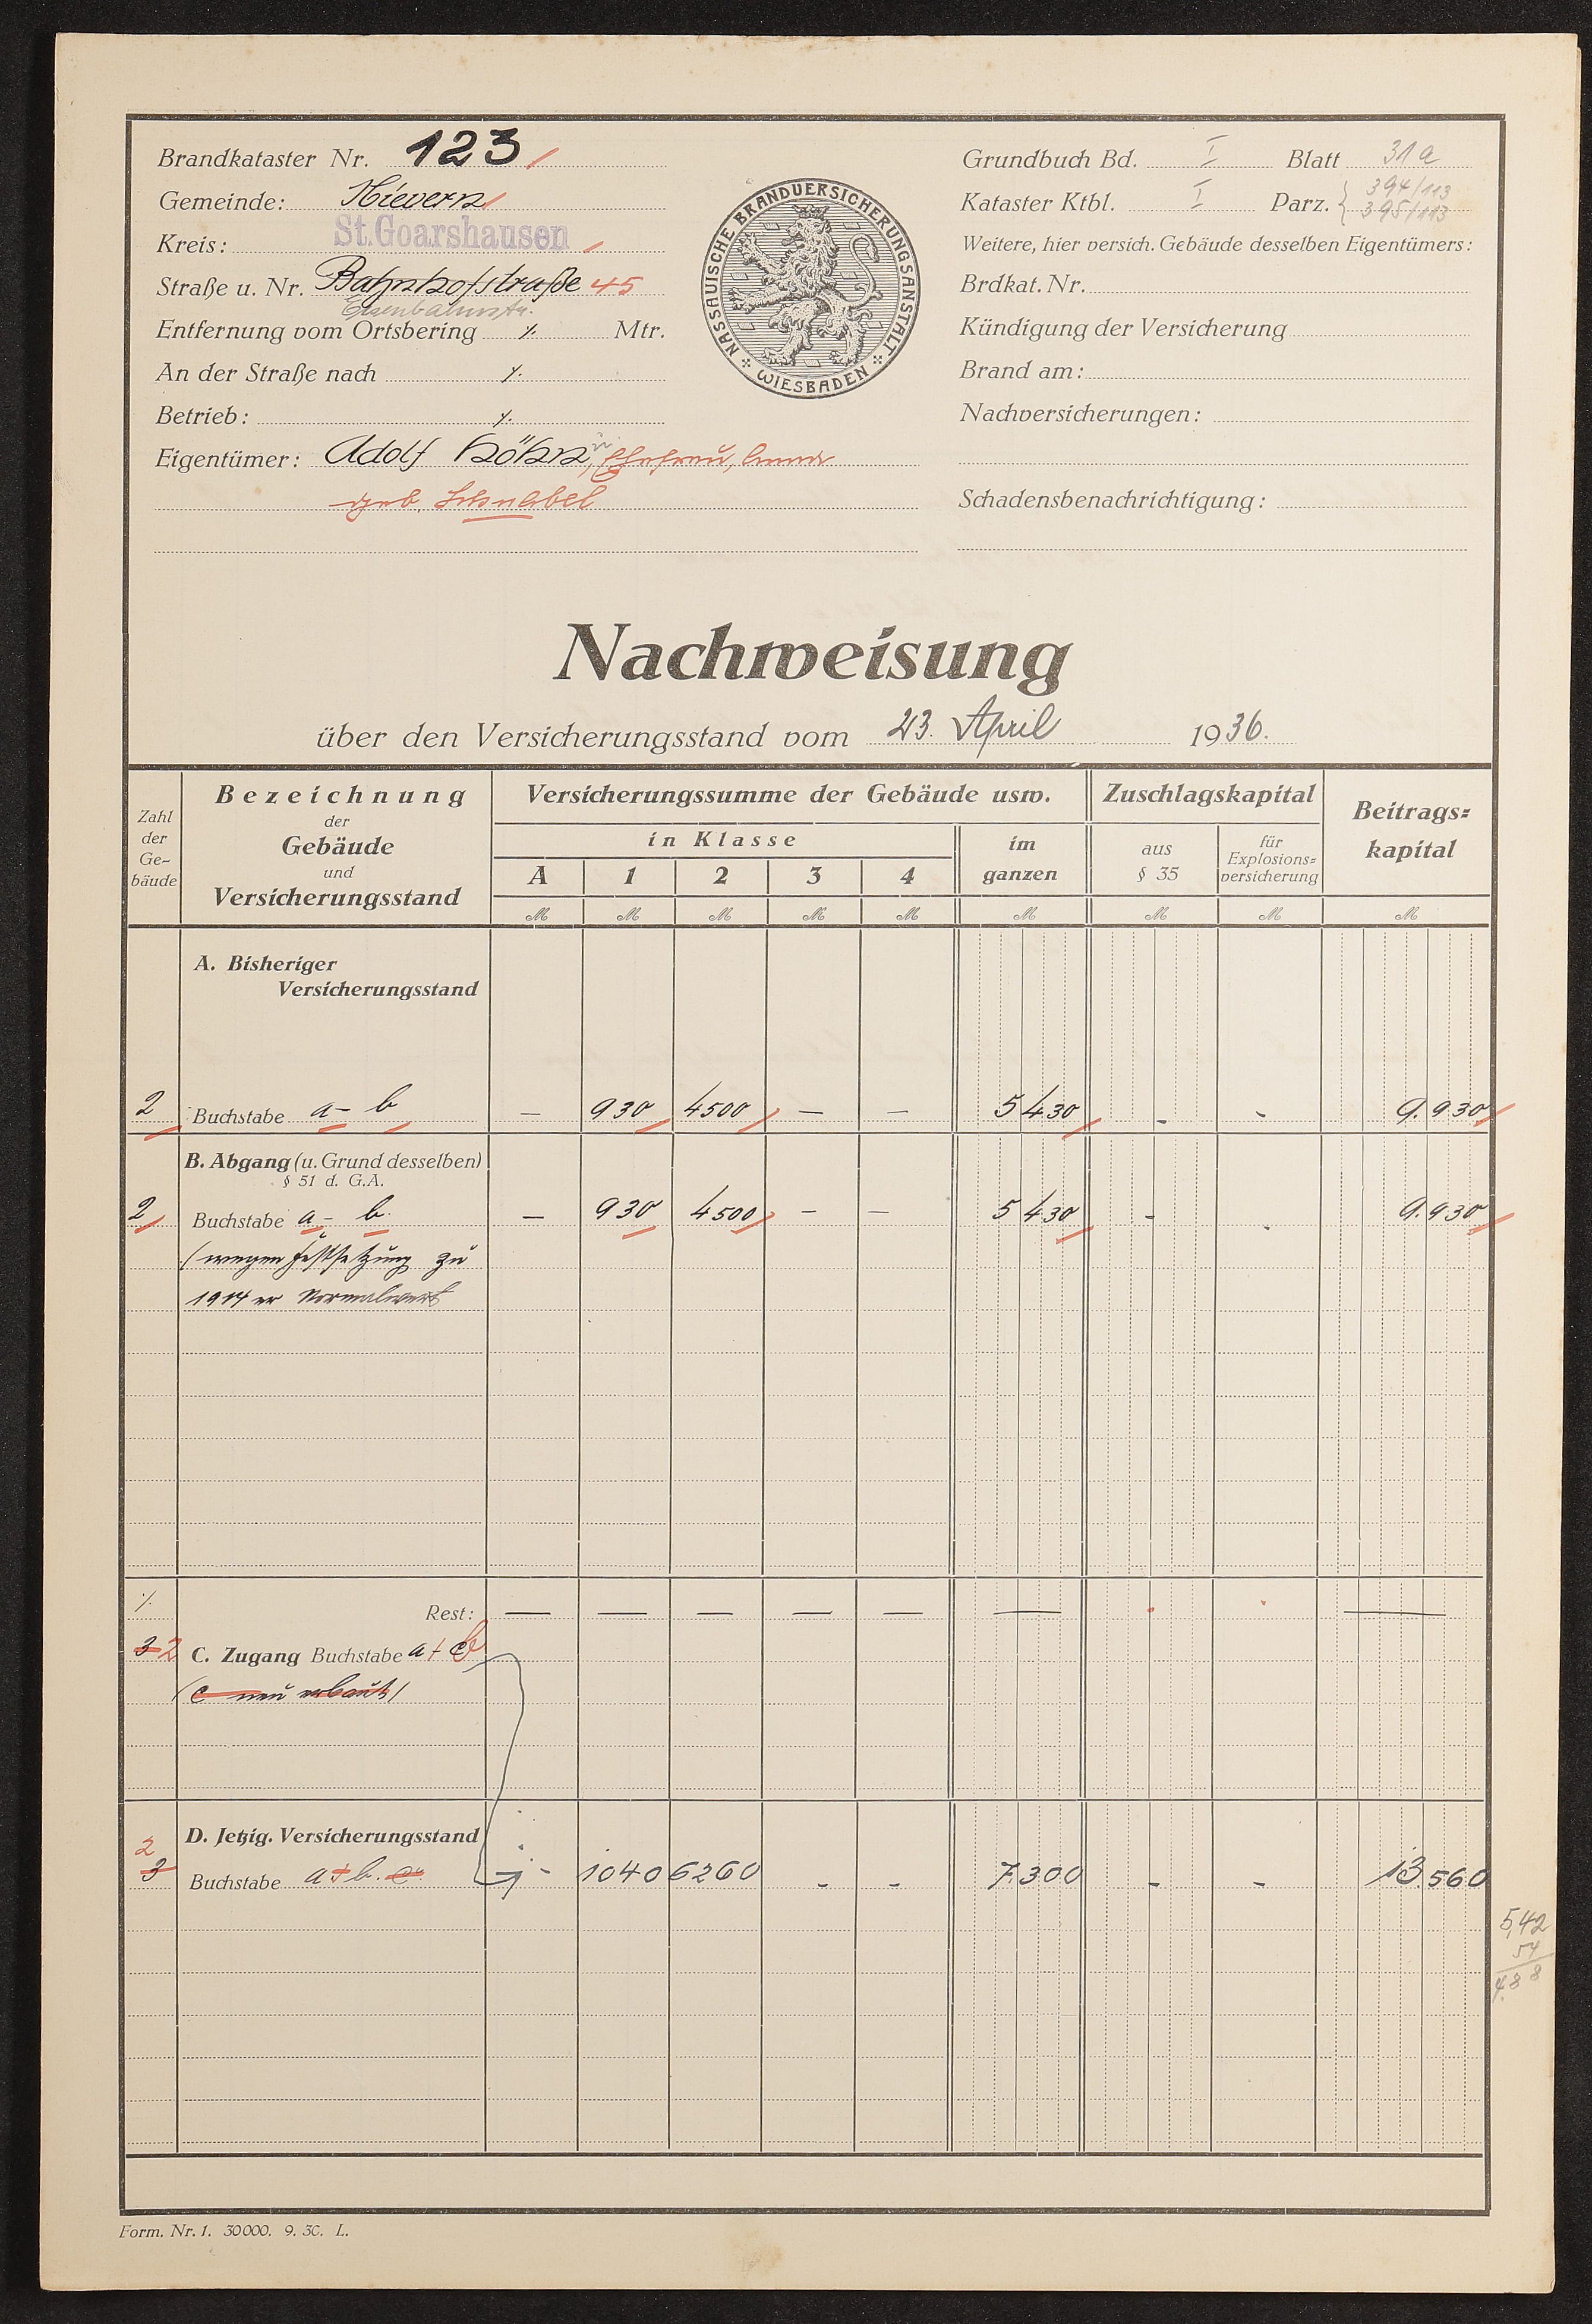 Brandkataster Nr. 123
Gemeinde: Nievern
Kreis: St. Goarshausen
Straße u. Nr. Bahnhofstraße 45
Eisenbahnstr.
Entfernung vom Ortsbering ./. Mtr.
An der Straße nach ./.
Betrieb: ./.
Eigentümer: Adolf Höhn u. Ehefrau, Anna
geb. Schnabel
NASSAUISCHE BRANDVERSICHERUNGSANSTALT
WIESBADEN
Grundbuch Bd. I Blatt 31a
Kataster Ktbl. I Parz. { 394/113
395/113
Weitere, hier versich. Gebäude desselben Eigentümers:
Brdkat. Nr.
Kündigung der Versicherung
Brand am:
Nachversicherungen:
Schadensbenachrichtigung:
Nachweisung
über den Versicherungsstand vom 23. April 1936.
Zahl der Ge-bäude
Bezeichnung
der
Gebäude
und
Versicherungsstand
Versicherungssumme der Gebäude usw.
in Klasse
A 1 2 3 4
im ganzen
Zuschlagskapital
aus § 35
für Explosions-versicherung
Beitrags-kapital
M M M M M M M M M
A. Bisheriger
Versicherungsstand
2 Buchstabe a - b — 930 4500 — — 5430 - - 9.930
B. Abgang (u. Grund desselben)
§ 51 d. G.A.
2 Buchstabe a - b. — 930 4500 — — 5430 - - 9.930
(wegen Festsetzung zu
1914er Normalwert
./. Rest: — — — — — — . . —
3 2 C. Zugang Buchstabe a + c b
(c neu erbaut)
2
D. Jetzig. Versicherungsstand
3 Buchstabe a + b. c. - 1040 6260 - - 7.300 - - 13.560
5,42
54
4,88
Form. Nr. 1. 30000. 9. 30. L.